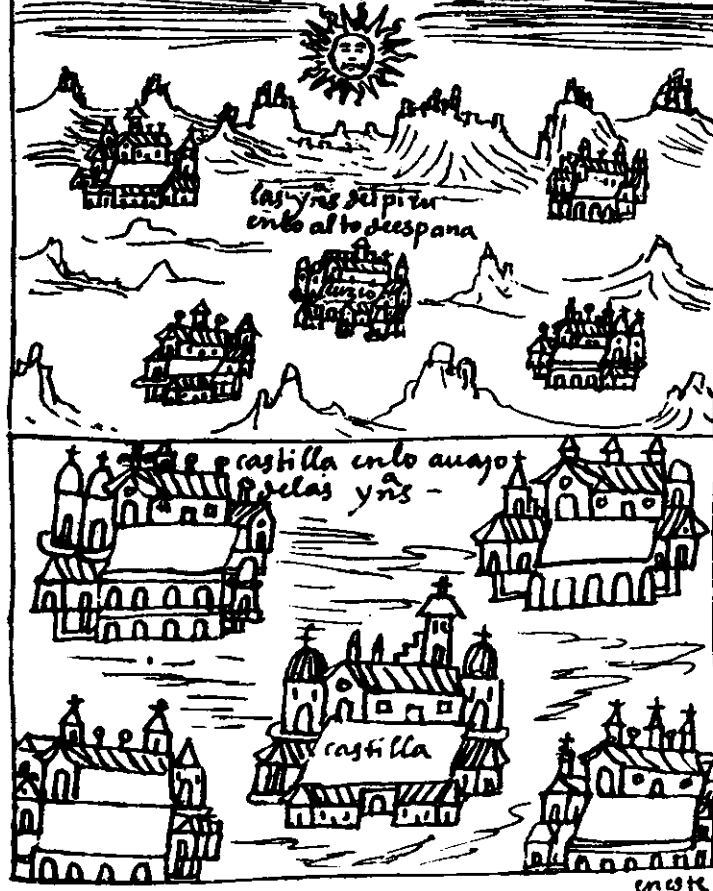 las yñs del piru
enlo alto deespana
cuzco
castilla enlo auajo
delas yñs -
castilla
eneste